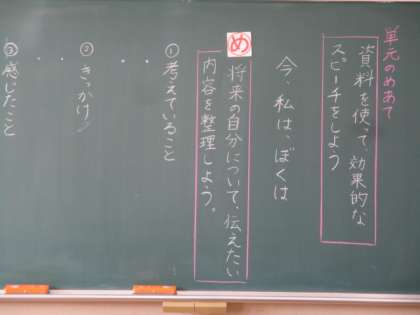 単元のめあて
資料を使って、効果的な
スピーチをしよう
今、私は、ぼくは
め
将来の自分について、伝えたい
内容を整理しよう。
① 考えていること
・
・
② きっかけ
・
・
③ 感じたこと